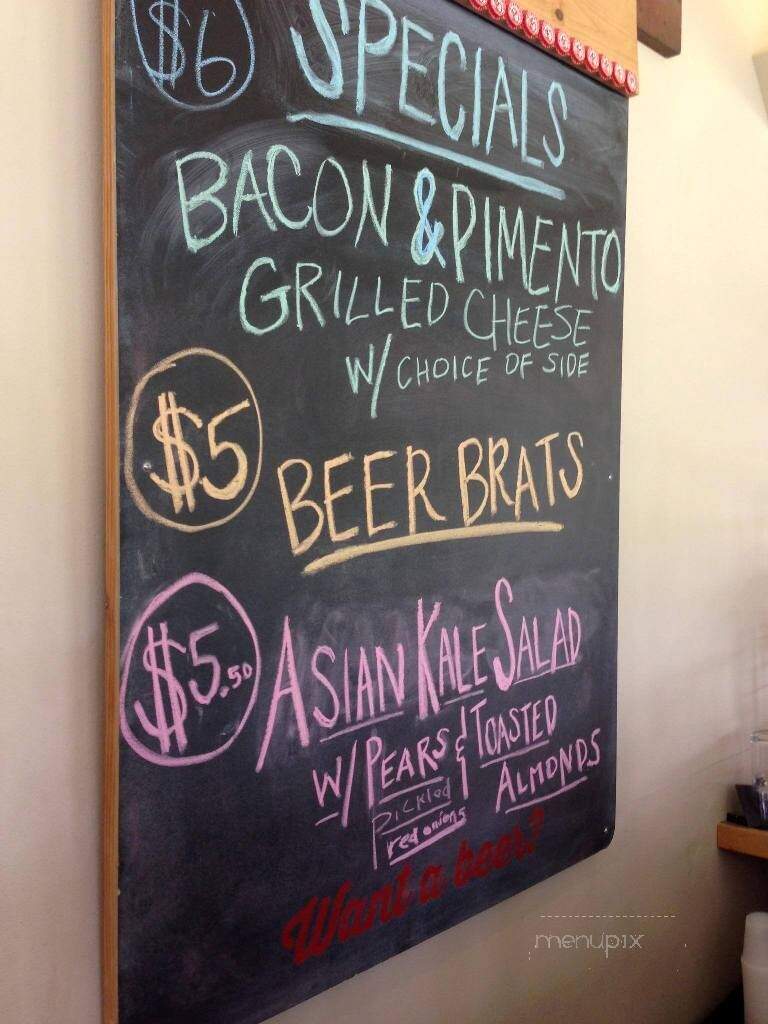 $6
SPECIALS
BACON & PIMENTO
GRILLED CHEESE
W/ CHOICE OF SIDE
$5
BEER BRATS
$5.50
ASIAN KALE SALAD
W/ PEARS & TOASTED
ALMONDS
PICKled
red onions
Want a beer?
menupix